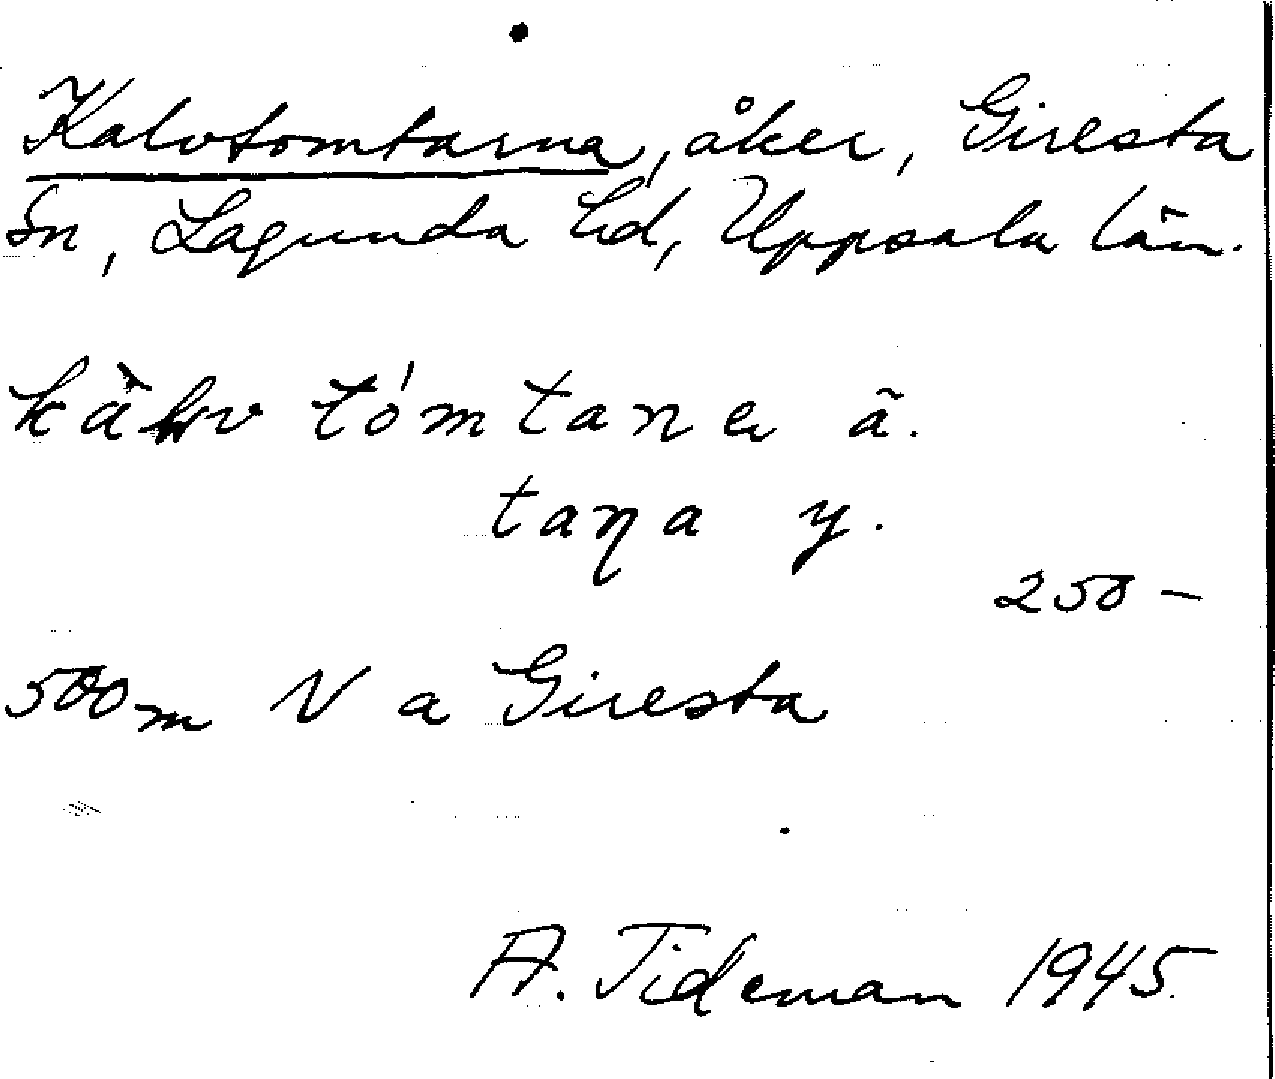 Kalvtomtarna, åker, Giresta
sn, Lagunda hd, Uppsala län.
tomtana ä.
taṇa y.
250 –
500 m N a Giresta
A. Tideman 1945.